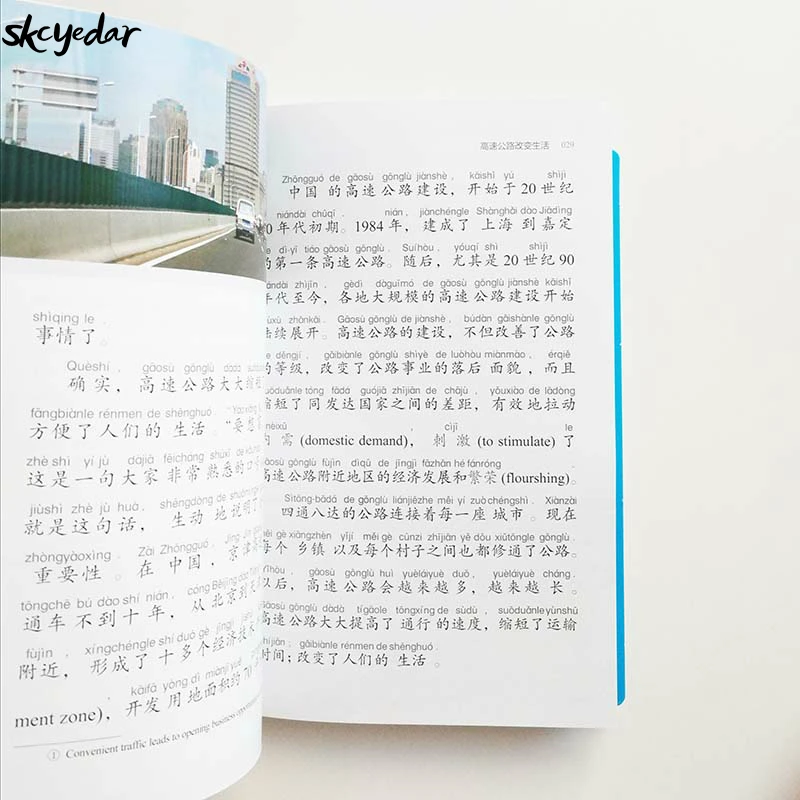 skcyedar
shìqing le .
事情了。
Quèshí , gāosù gōnglù dàdà
确实，高速公路大大
fāngbiànle rénmen de shēnghuó . “Yào xiǎng
方便了人们的 生活 。“要想
zhè shì yí jù dàjiā fēicháng shúxī de
这是一句大家 非常 熟悉的口
jiùshì zhè jù huà , shēngdòng de shuōmíng
就是这句话， 生动 地说明了
zhòngyàoxìng . Zài Zhōngguó , Jīng
重要性 。在 中国 ，京津
tōngchē bú dào shí nián , cóng Běijīng dào
通车 不到十 年，从 北京到天
fùjìn , xíngchéngle shí duō gè jīngjì
附近，形成了 十多个经济技
kāifā yòng dì miànjī yuē
ment zone)，开发 用 地面积约 70
① Convenient traffic leads to opening business
高速公路改变生活 029
Zhōngguó de gāosù gōnglù jiànshè , kāishǐ yú shìjì
中国 的高速公路建设，开始于 20 世纪
niándài chūqī . nián , jiànchéngle Shànghǎi dào Jiādìng
0 年代初期。1984 年，建成了 上海 到 嘉定
de dì-yī tiáo gāosù gōnglù . Suíhòu , yóuqí shì shìjì
的第一条高速公路。随后，尤其是 20 世纪 90
niándài zhìjīn , gèdì dàguīmó de gāosù gōnglù jiànshè kāishǐ
年代至今，各地大规模的高速公路建设开始
lùxù zhǎnkāi . Gāosù gōnglù de jiànshè , búdàn gǎishànle gōnglù
陆续展开。高速公路的建设，不但改善了公路
de děngjí , gǎibiànle gōnglù shìyè de luòhòu miànmào , érqiě
的等级，改变了公路事业的落后 面貌 ，而且
suōduǎnle tóng fādá guójiā zhījiān de chājù , yǒuxiào de lādòng
缩短了 同发达国家之间的差距，有效地拉动
nèixū , cìjī le
内 需 (domestic demand)， 刺 激 (to stimulate) 了
gāosù gōnglù fùjìn dìqū de jīngjì fāzhǎn hé fánróng .
高速公路附近地区的经济发展和繁荣 (flourshing)。
Sìtōng-bādá de gōnglù liánjiēzhe měi yí zuò chéngshì . Xiànzài
四通八达的公路连接着每一座 城市 。现在
měi gè xiāngzhèn yǐjí měi gè cūnzi zhījiān yě dōu xiūtōngle gōnglù .
每个 乡镇 以及每个村子之间也都修通了公路。
yǐhòu , gāosù gōnglù huì yuèláiyuè duō , yuèláiyuè cháng .
以后，高速公路会越来越多，越来越 长 。
Gāosù gōnglù dàdà tígāole tōngxíng de sùdù , suōduǎnle yùnshū
高速公路大大提高了 通行 的速度，缩短了运输
shíjiān , gǎibiànle rénmen de shēnghuó .
时间；改变了人们的 生活 。